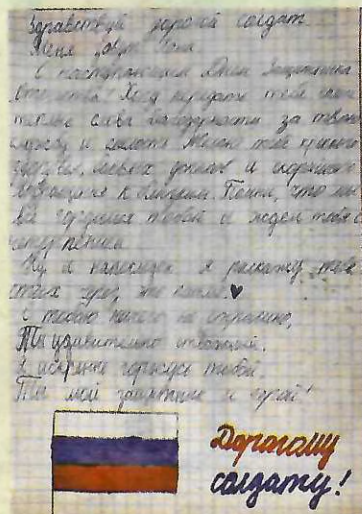 Здравствуй дорогой солдат
Меня зовут
С наступающим Днём Защитника
Отечества! Хочу передать тебе свои
тёплые слова благодарности за твою
службу и Желаю тебе крепкого
здоровья, и скорейшего
возвращения к близким. Помни, что мы
все гордимся тобой и ждём тебя с
нетерпением
Ну а напоследок я расскажу тебе
стих
С тобою ничего не страшно,
Ты удивительно отважный.
Я искренне горжусь тобой,
Ты мой защитник и герой!
Дорогому
солдату!